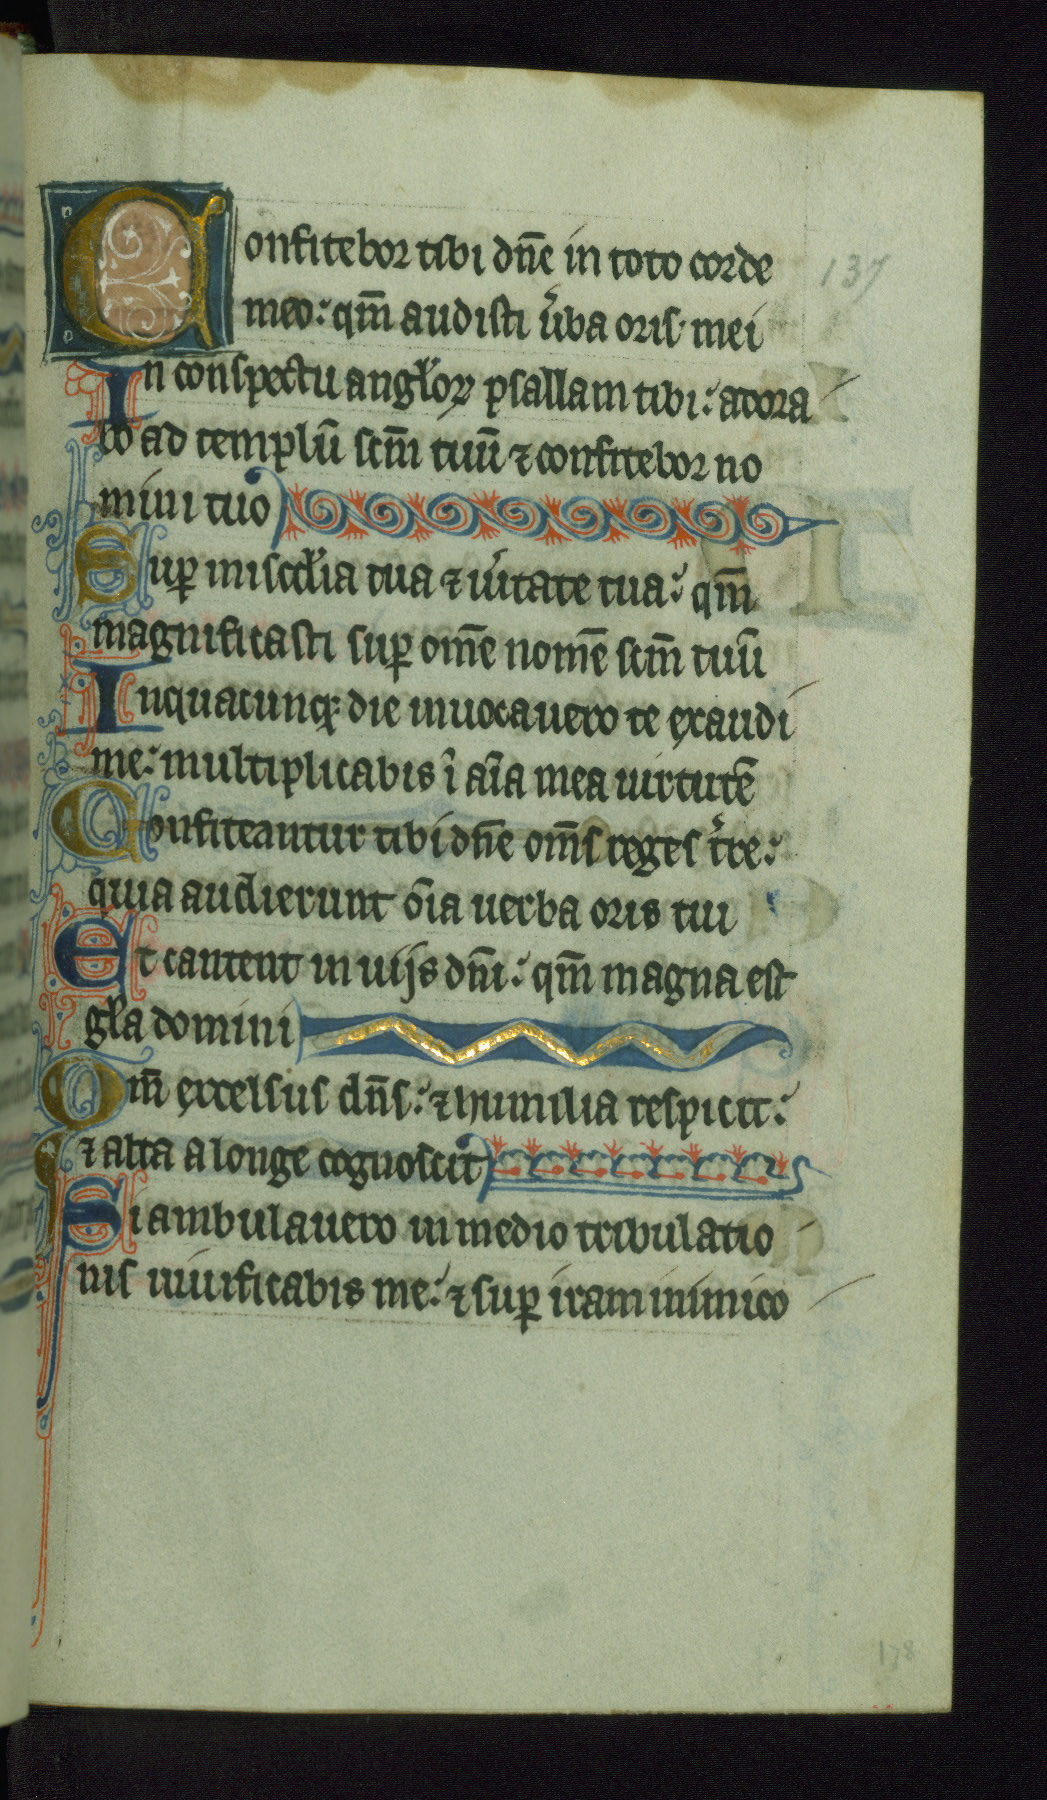 Confitebor tibi dn̄e in toto corde
137
meo: qm̄ audisti u̓ba oris mei
In conspectu angl̓oꝝ psallam tibi: adora
bo ad templū scm̄ tuū ⁊ confitebor no
mini tuo
Suꝑ miscd̓ia tua ⁊ u̓itate tua: qm̄
magnificasti suꝑ om̄e nom̄e scm̄ tuū
In quacunqꝫ die inuocauero te exaudi
me: multiplicabis ī aīa mea uirtutē
Confiteantur tibi dn̄e om̄s reges t̓re:
quia audierunt oīa uerba oris tui
Et cantent in uijs dn̄i: qm̄ magna est
gl̓a domini
Qm̄ excelsus dn̄s: ⁊ humilia respicit:
⁊ alta a longe cognoscit
Si ambulauero in medio tribulatio
nis uiuificabis me: ⁊ suꝑ iram inimico
178